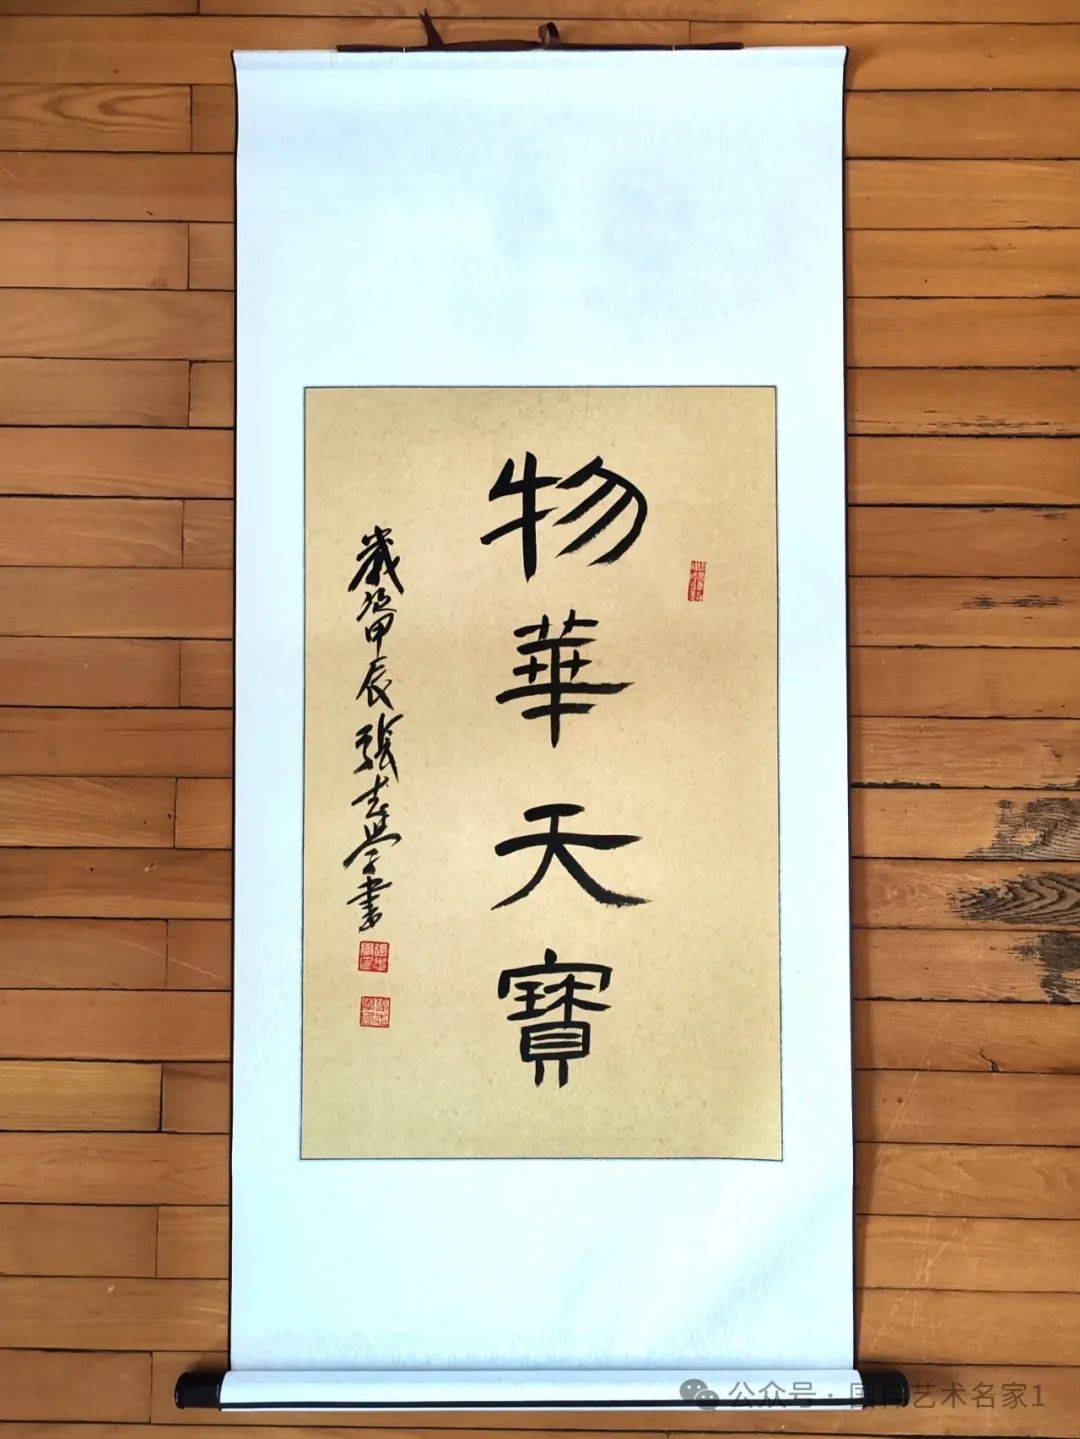 物華天寶
歲甲辰張志學書
公众号 · 艺术名家1